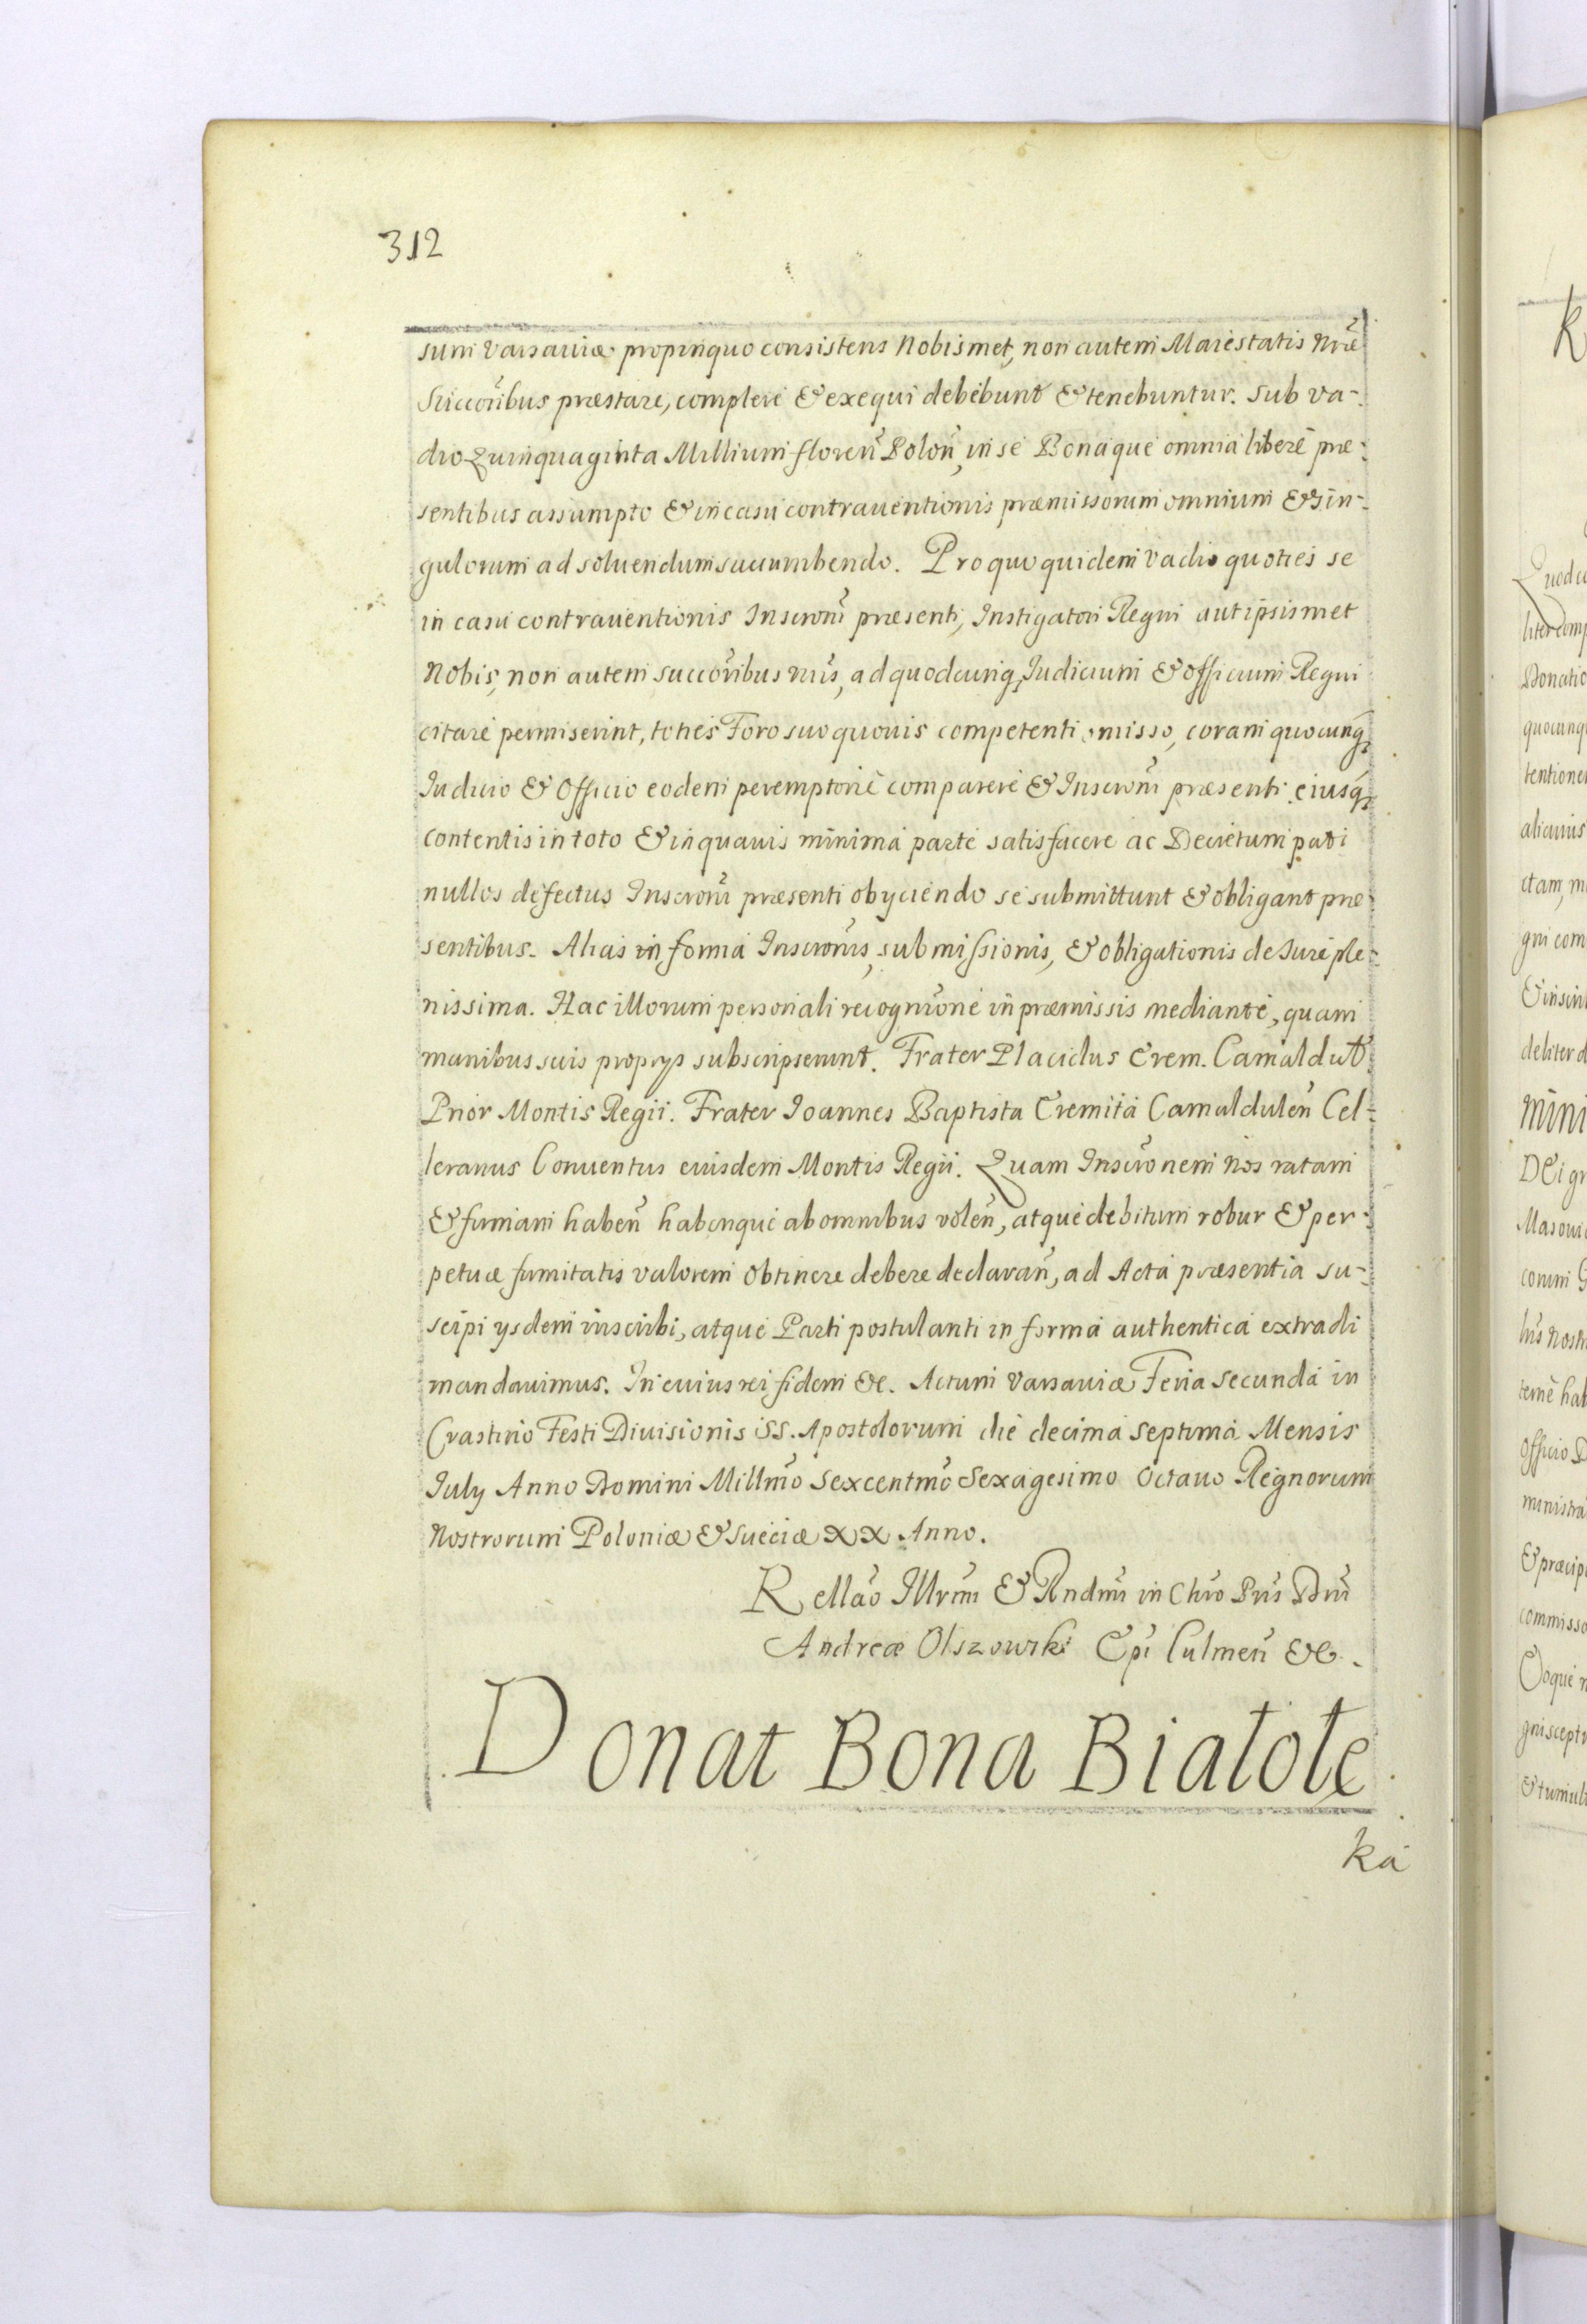 312
sum Varsauiæ propinquo consistens Nobismet, non autem Maiestatis Nrӕ
Succoribus præstare, complere & exequi debebunt & tenebuntur. Sub va-
dio Quinquaginta Millium floren Polon, in se Bonaque omnia liberè præ-
sentibus assumpto & in casu contrauentionis præmissorum omnium & sin-
gulorum ad soluendum sucumbendo. Pro quo quidem Vadio quoties se
in casu contrauentionis Inscroni præsenti, Instigatori Regni aut ipsismet
Nobis, non autem succoribus nris, ad quodcunq Iudicium & Officium Regni
citare permiserint, toties Foro suo quouis competenti omisso, coram quocunq
Iudicio & Officio eodem peremptoriè comparere & Inscroni præsenti eiusq
contentis in toto & in quauis minima parte satisfacere ac Decretum pati
nullos defectus Inscroni præsenti obyciendo se submittunt & obligant præ
sentibus. Alias in forma Inscronis, submissionis, & obligationis de Iure ple-
nissima. Hac illorum personali recognione in præmissis mediante, quam
manibus suis proprys subscripserunt. Frater Placidus Erem. Camaldul
Prior Montis Regii. Frater Ioannes Baptista Eremita Camaldulen Cel-
lerarius Conuentus eiusdem Montis Regii. Quam Inscronem Nos ratam
& firmam haben haberique ab omnibus volen, atque debitum robur & per-
petuæ firmitatis valorem obtinere debere declaran, ad Acta præsentia su-
scipi ysdem inscribi, atque Parti postulanti in forma authentica extradi
mandauimus. In cuius rei fidem &c. Actum Varsauiæ Feria secunda in
Crastino Festi Diuisionis SS. Apostolorum die decima septima Mensis
July Anno Domini Millmo Sexcentmo Sexagesimo Octauo Regnorum
Nostrorum Poloniæ & Sueciæ XX Anno.
Rellao Illrmi & Rndmi in Chro Pris Dni
Andreæ Olszowski Epi Culmen &c.
Donat Bona Białołe
ka